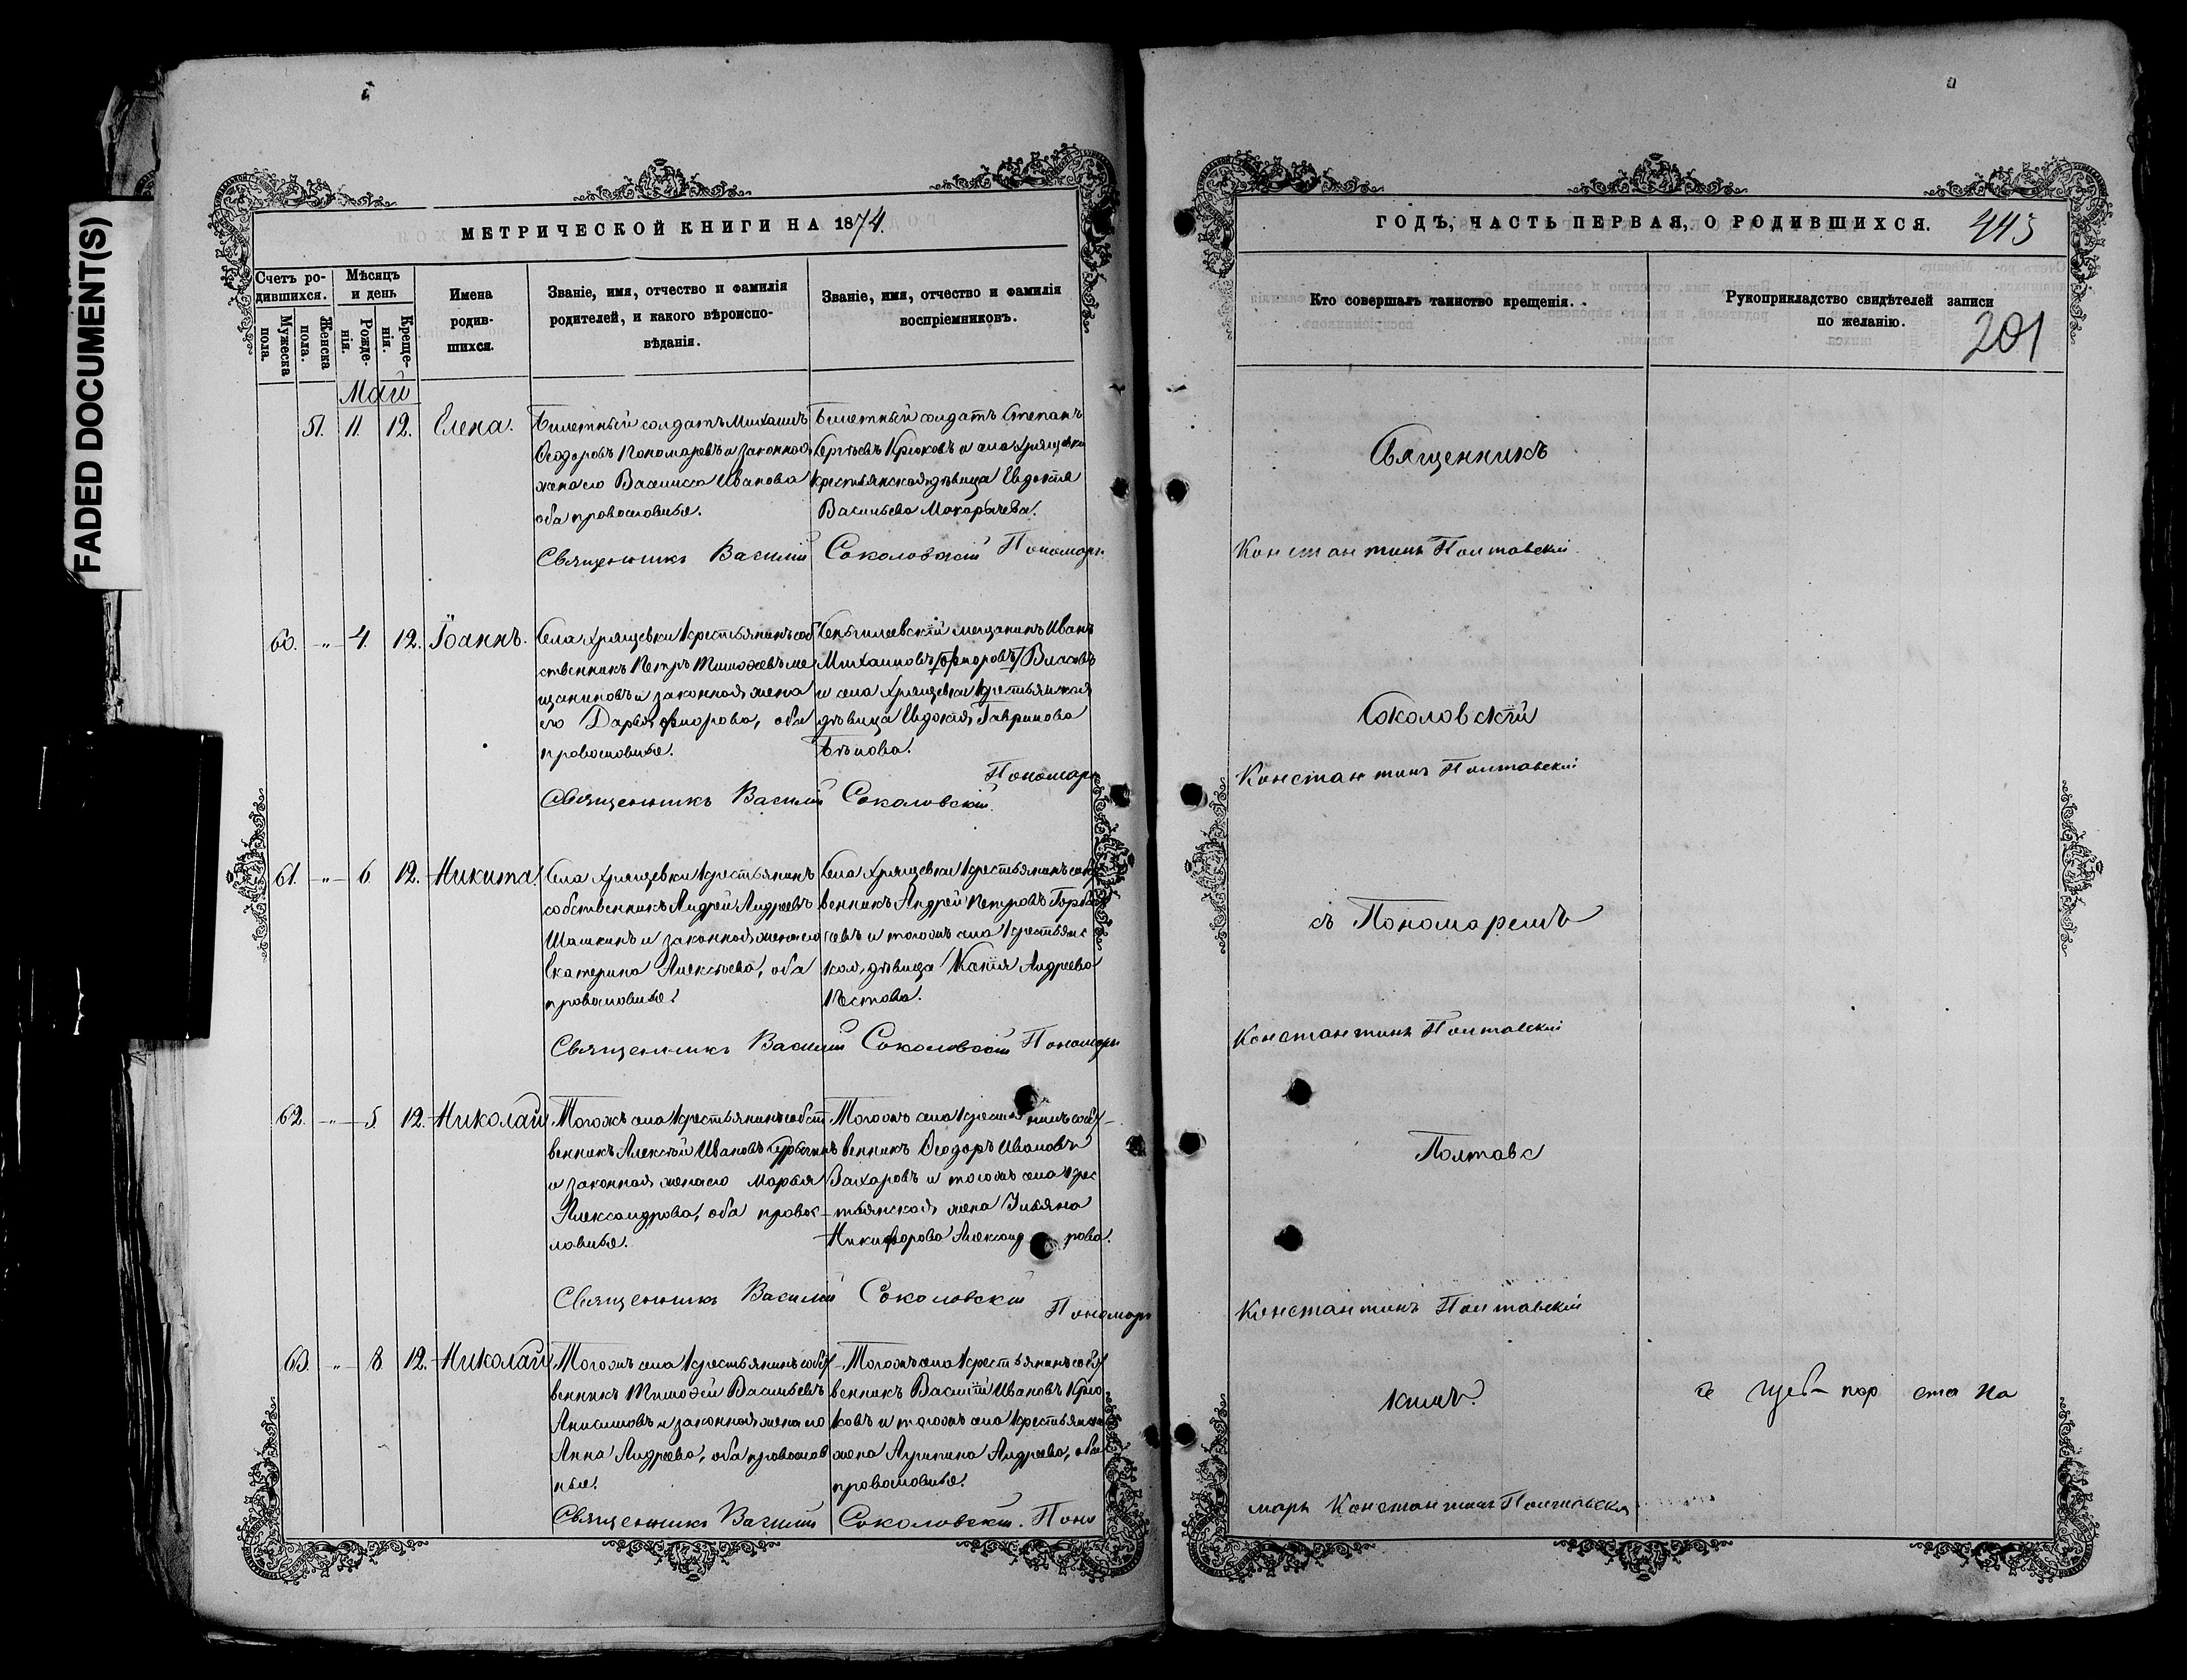 FADED DOCUMENT(S)
МЕТРИЧЕСКОЙ КНИГИ НА 1874.
Счетъ ро-
дившихся.
Мужеска
пола.
Женска
пола.
Мѣсяцъ
и день
Рожде-
нія.
Креще-
нія.
Имена
родив-
шихся.
Званіе, имя, отчество и фамилія
родителей, и какого вѣроиспо-
вѣданія.
Званіе, имя, отчество и фамилія
воспріемниковъ.
Май
51. 11. 12. Елена.
Билетный солдатъ Михаилъ
Ѳеодоровъ Пономаревъ и законная
жена его Васиписа Иванова
оба православные.
Билетный солдатъ Степанъ
Сергѣевъ Крюковъ и села Хрящевки
крестьянская дѣвица Евдокія
Васильева Макарычева.
Священникъ Василій Соколовскій Пономарь
60. -"- 4. 12. Іоаннъ.
Села Хрящевки крестьянинъ соб
ственникъ Петръ Тимоѳеевъ ме
щаниновъ и законная жена
его Дарья Флорова, оба
православные.
Сенгилеевскій мещанинъ Иванъ
Михаиловъ Власовъ
и села Хрящевки крестьянская
дѣвица Евдокія Гаврилова
Бѣлова.
Пономарь
Священникъ Василій Соколовскій.
61. -"- 6. 12. Никита.
Села Хрящевки крестьянинъ
собственникъ Андрей Андреевъ
Шашкинъ и законная жена его
Екатерина Алексѣева, оба
православные.
Села Хрящевки крестьянинъ собст
венникъ Андрей Петровъ Горба
чевъ и тогожъ села крестьянс
кая дѣвица Андреева
Священникъ Василій Соколовскій Пономарь
62. -"- 5. 12. Николай
Тогожъ села крестьянинъ собст
венникъ Алексѣй Ивановъ
и законная жена его Марья
Александрова, оба правос-
лавные.
Тогожъ села крестьянинъ собст-
венникъ Ѳеодоръ Ивановъ
Захаровъ и тогожъ села крес
тьянская жена Ульяна
Никифорова Александрова.
Священникъ Василій Соколовскій
Пономарь
63. -"- 8 12. Николай
Тогожъ села крестьянинъ собст-
венникъ Тимоѳей Васильевъ
Анисимовъ и законная жена его
Анна Андреева, оба православ
ные.
Тогожъ села крестьянинъ собст
венникъ Василій Ивановъ Крю
ковъ и тогожъ села крестьянская
жена Агрипина Андреева, оба
православные.
Священникъ Василій Соколовскій. Поно
ГОДЪ, ЧАСТЬ ПЕРВАЯ, О РОДИВШИХСЯ.
443
Кто совершалъ таинство крещенія.
Рукоприкладство свидѣтелей записи
по желанію.
201
Священникъ
Константинъ Полтавскій.
Соколовскій
Константинъ Полтавскій
съ Пономаремъ
Константинъ Полтавскій
Полтавс
Константинъ Полтавскій
кимъ.
марь Константинъ Полтавскій